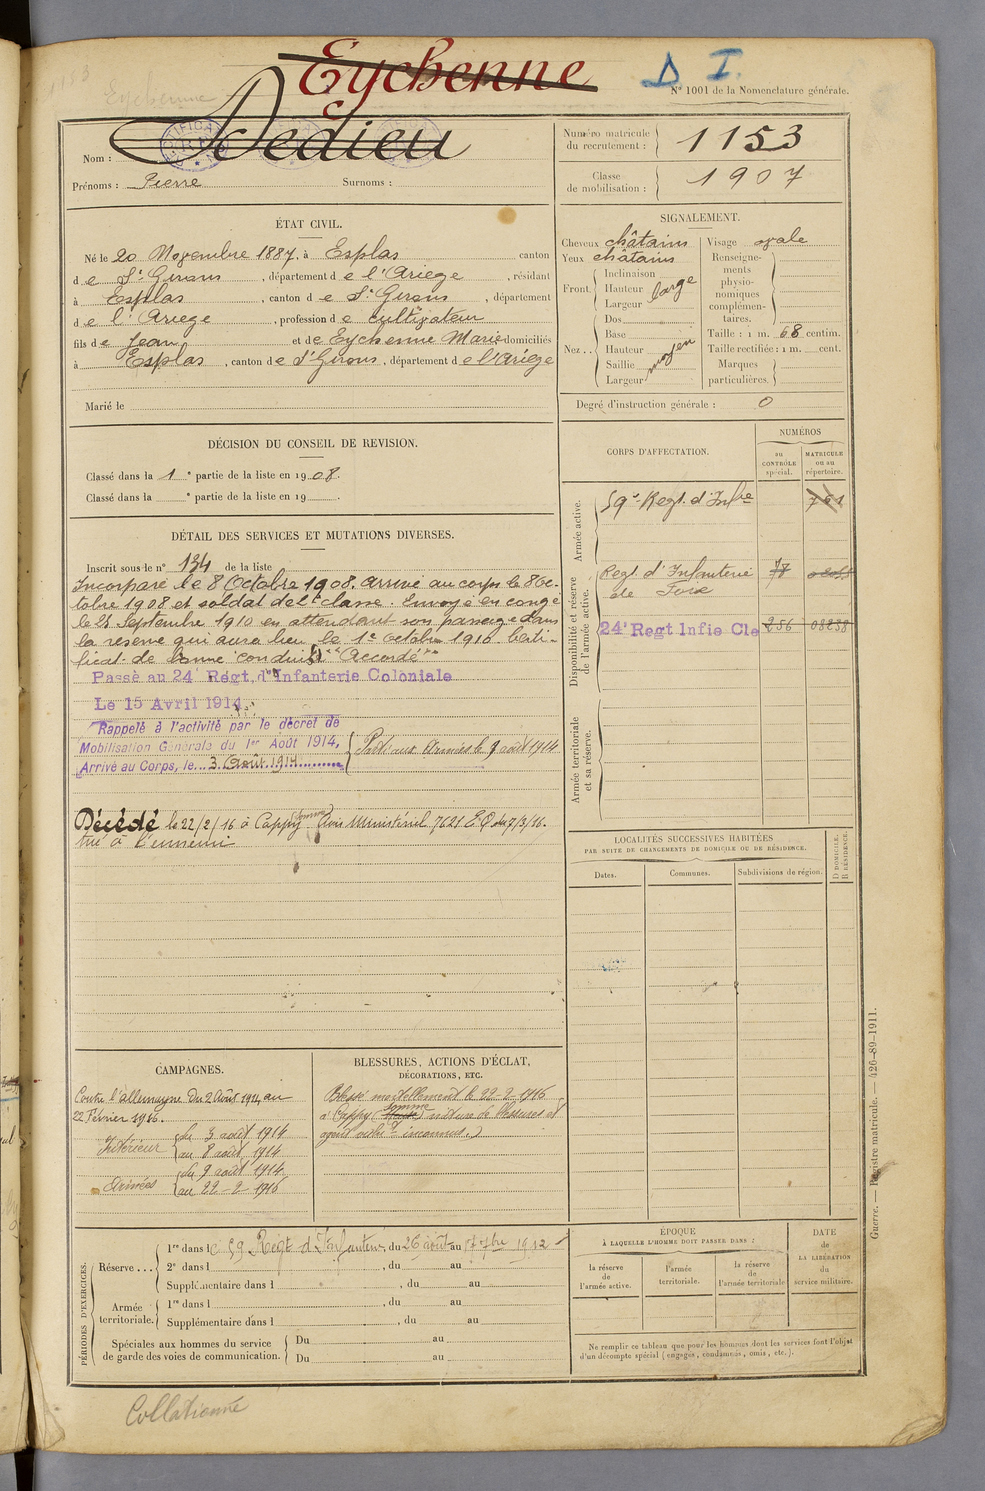 1153
Eychenne
Eychenne
D I.
N° 1001 de la Nomenclature générale.
Nom : Dedieu
Prénoms : Pierre Surnoms :
Numéro matricule du recrutement : 1153
Classe de mobilisation : 1907
ÉTAT CIVIL.
Né le 20 Novembre 1887, à Esplas canton
de St Girons, département de l'Ariège, résidant
à Esplas, canton de St Girons, département
de l'Ariege, profession de cultivateur
fils de Jean et de Eychenne Marie domiciliés
à Esplas, canton de St Girons, département de l'Ariège
Marié le
SIGNALEMENT.
Cheveux châtains
Yeux châtains
Front. Inclinaison
Hauteur
Largeur large
Nez.. Dos
Base
Hauteur
Saillie moyen
Largeur
Visage ovale
Renseignements physionomiques complémentaires.
Taille : 1 m. 68 centim.
Taille rectifiée : 1 m. cent.
Marques particulières.
Degré d'instruction générale : 0
DÉCISION DU CONSEIL DE REVISION.
Classé dans la 1e partie de la liste en 1908.
Classé dans la e partie de la liste en 19 .
DÉTAIL DES SERVICES ET MUTATIONS DIVERSES.
Inscrit sous le n° 134 de la liste
Incorporé le 8 Octobre 1908. Arrivé au corps le 8 Oc-
tobre 1908 et soldat de 2e classe. Envoyé en congé
le 25 Septembre 1910 en attendant son passage dans
la réserve qui aura lieu le 1er octobre 1910. Certi-
ficat de bonne conduite "Accordé"
Passé au 24 Régt. d'Infanterie Coloniale
Le 15 Avril 1914.
Rappelé à l'activité par le décret de
Mobilisation Générale du 1er Août 1914,
Arrivé au Corps, le 3 Août 1914
Parti aux Armées le 9 août 1914
Décédé le 22/2/16 à Cappy Somme Avis Ministériel 7621 E.D. du 7/3/16.
tué à l'ennemi
CORPS D'AFFECTATION.
NUMÉROS
au CONTRÔLE spécial.
MATRICULE ou au répertoire.
Armée active.
59e Regt. d'Infie 761
Disponibilité et réserve de l'armée active.
Regt. d'Infanterie
de Foix
24e Regt Infie Cle 256 08238
Armée territoriale et sa réserve.
LOCALITÉS SUCCESSIVES HABITÉES
PAR SUITE DE CHANGEMENTS DE DOMICILE OU DE RÉSIDENCE.
Dates.
Communes.
Subdivisions de région.
D DOMICILE,
R RÉSIDENCE.
CAMPAGNES.
Contre l'allemagne du 2 Août 1914 au
22 Février 1916.
Intérieur du 3 août 1914
au 8 août 1914
Armées du 9 août 1914
au 22-2-1916
BLESSURES, ACTIONS D'ÉCLAT,
DÉCORATIONS, ETC.
Blessé mortellement le 22-2-1916
à Cappy (Somme) nature de blessures et
agent inconnus.)
PÉRIODES D'EXERCICES.
Réserve ... 1re dans le 59 Régt d'Infanterie, du 26 août au 17 7bre 1912
2e dans l , du au
Supplémentaire dans l , du au
Armée territoriale. 1re dans l , du au
Supplémentaire dans l , du au
Spéciales aux hommes du service de garde des voies de communication. Du au
Du au
ÉPOQUE
À LAQUELLE L'HOMME DOIT PASSER DANS :
la réserve de l'armée active.
l'armée territoriale.
la réserve de l'armée territoriale
DATE de LA LIBÉRATION du service militaire.
Ne remplir ce tableau que pour les hommes dont les services font l'objet
d'un décompte spécial (engagés, condamnés, omis, etc.).
Guerre. — Registre matricule. — 426-89-1911.
Collationné